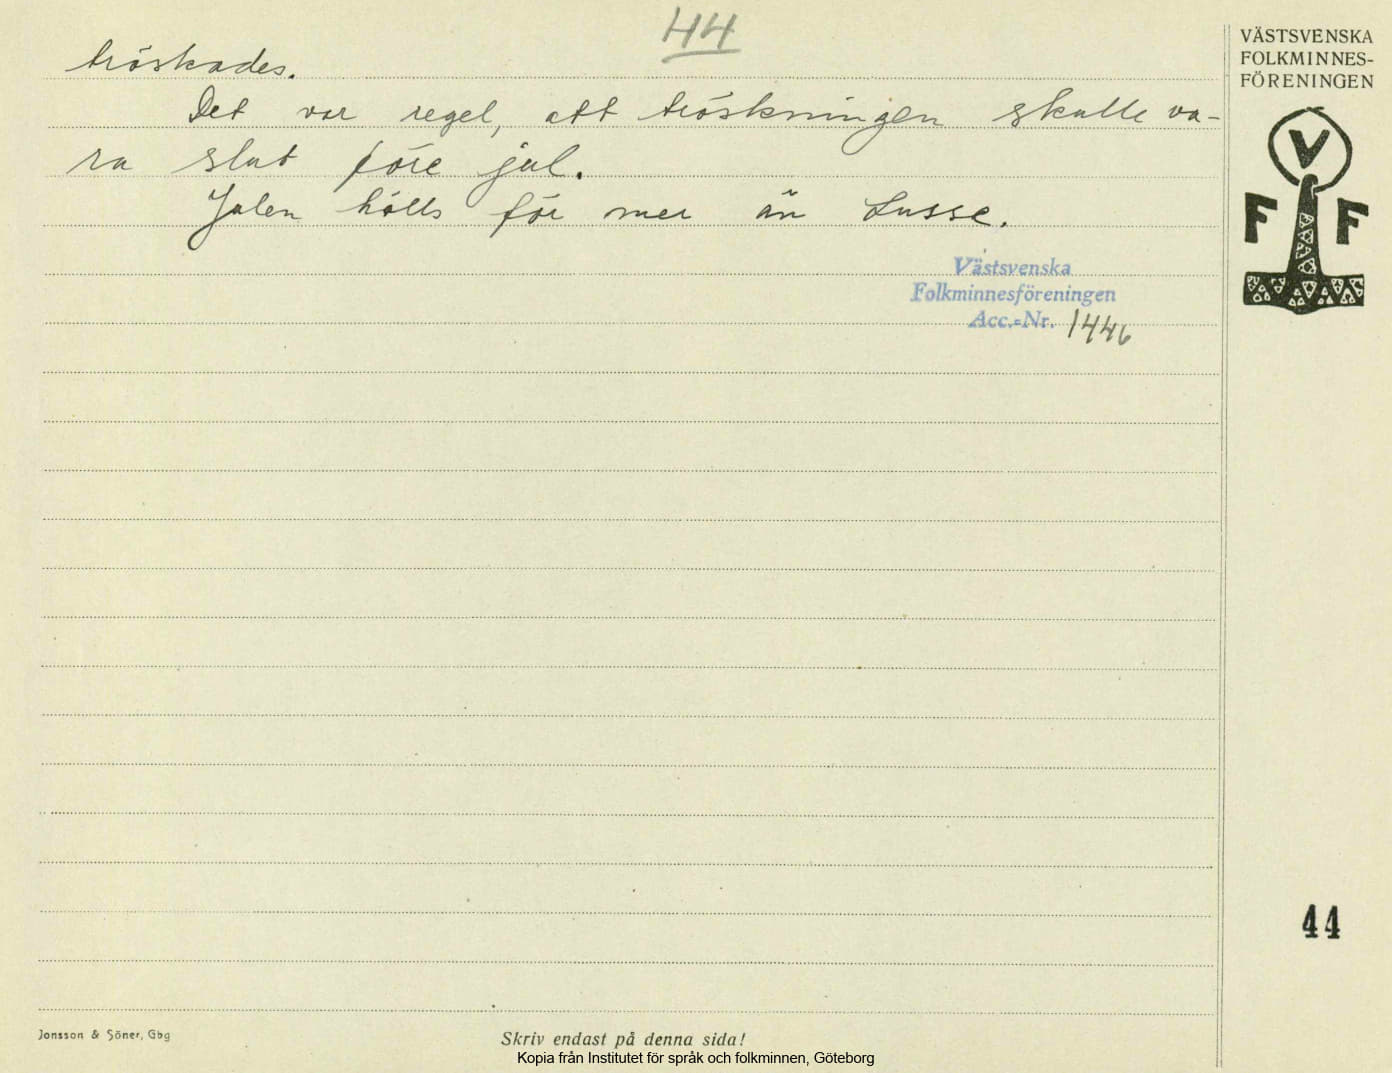 44
tröskades.
Det var regel, att tröskningen skulle va-
ra slut före jul.
Julen hölls för mer än Lusse.
Västsvenska
Folkminnesföreningen
Acc.-Nr. 1446
VÄSTSVENSKA
FOLKMINNES-
FÖRENINGEN
V
F F
44
Jonsson & Söner, Gbg
Skriv endast på denna sida!
Kopia från Institutet för språk och folkminnen, Göteborg